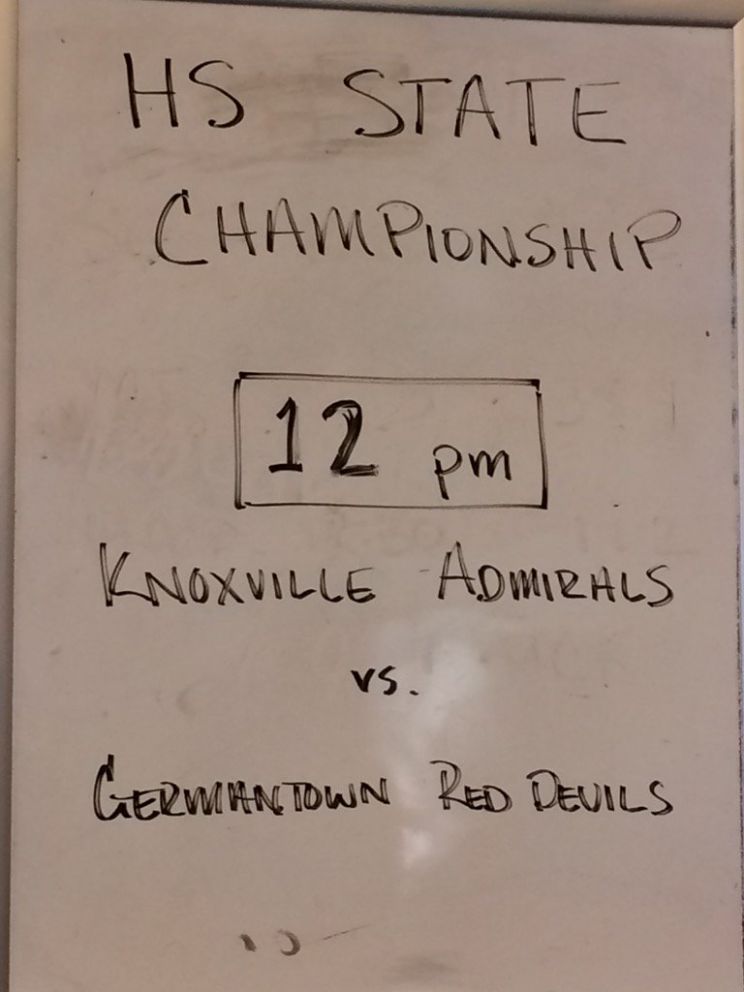 HS STATE
CHAMPIONSHIP
12 pm
KNOXVILLE ADMIRALS
vs.
GERMANTOWN RED DEVILS